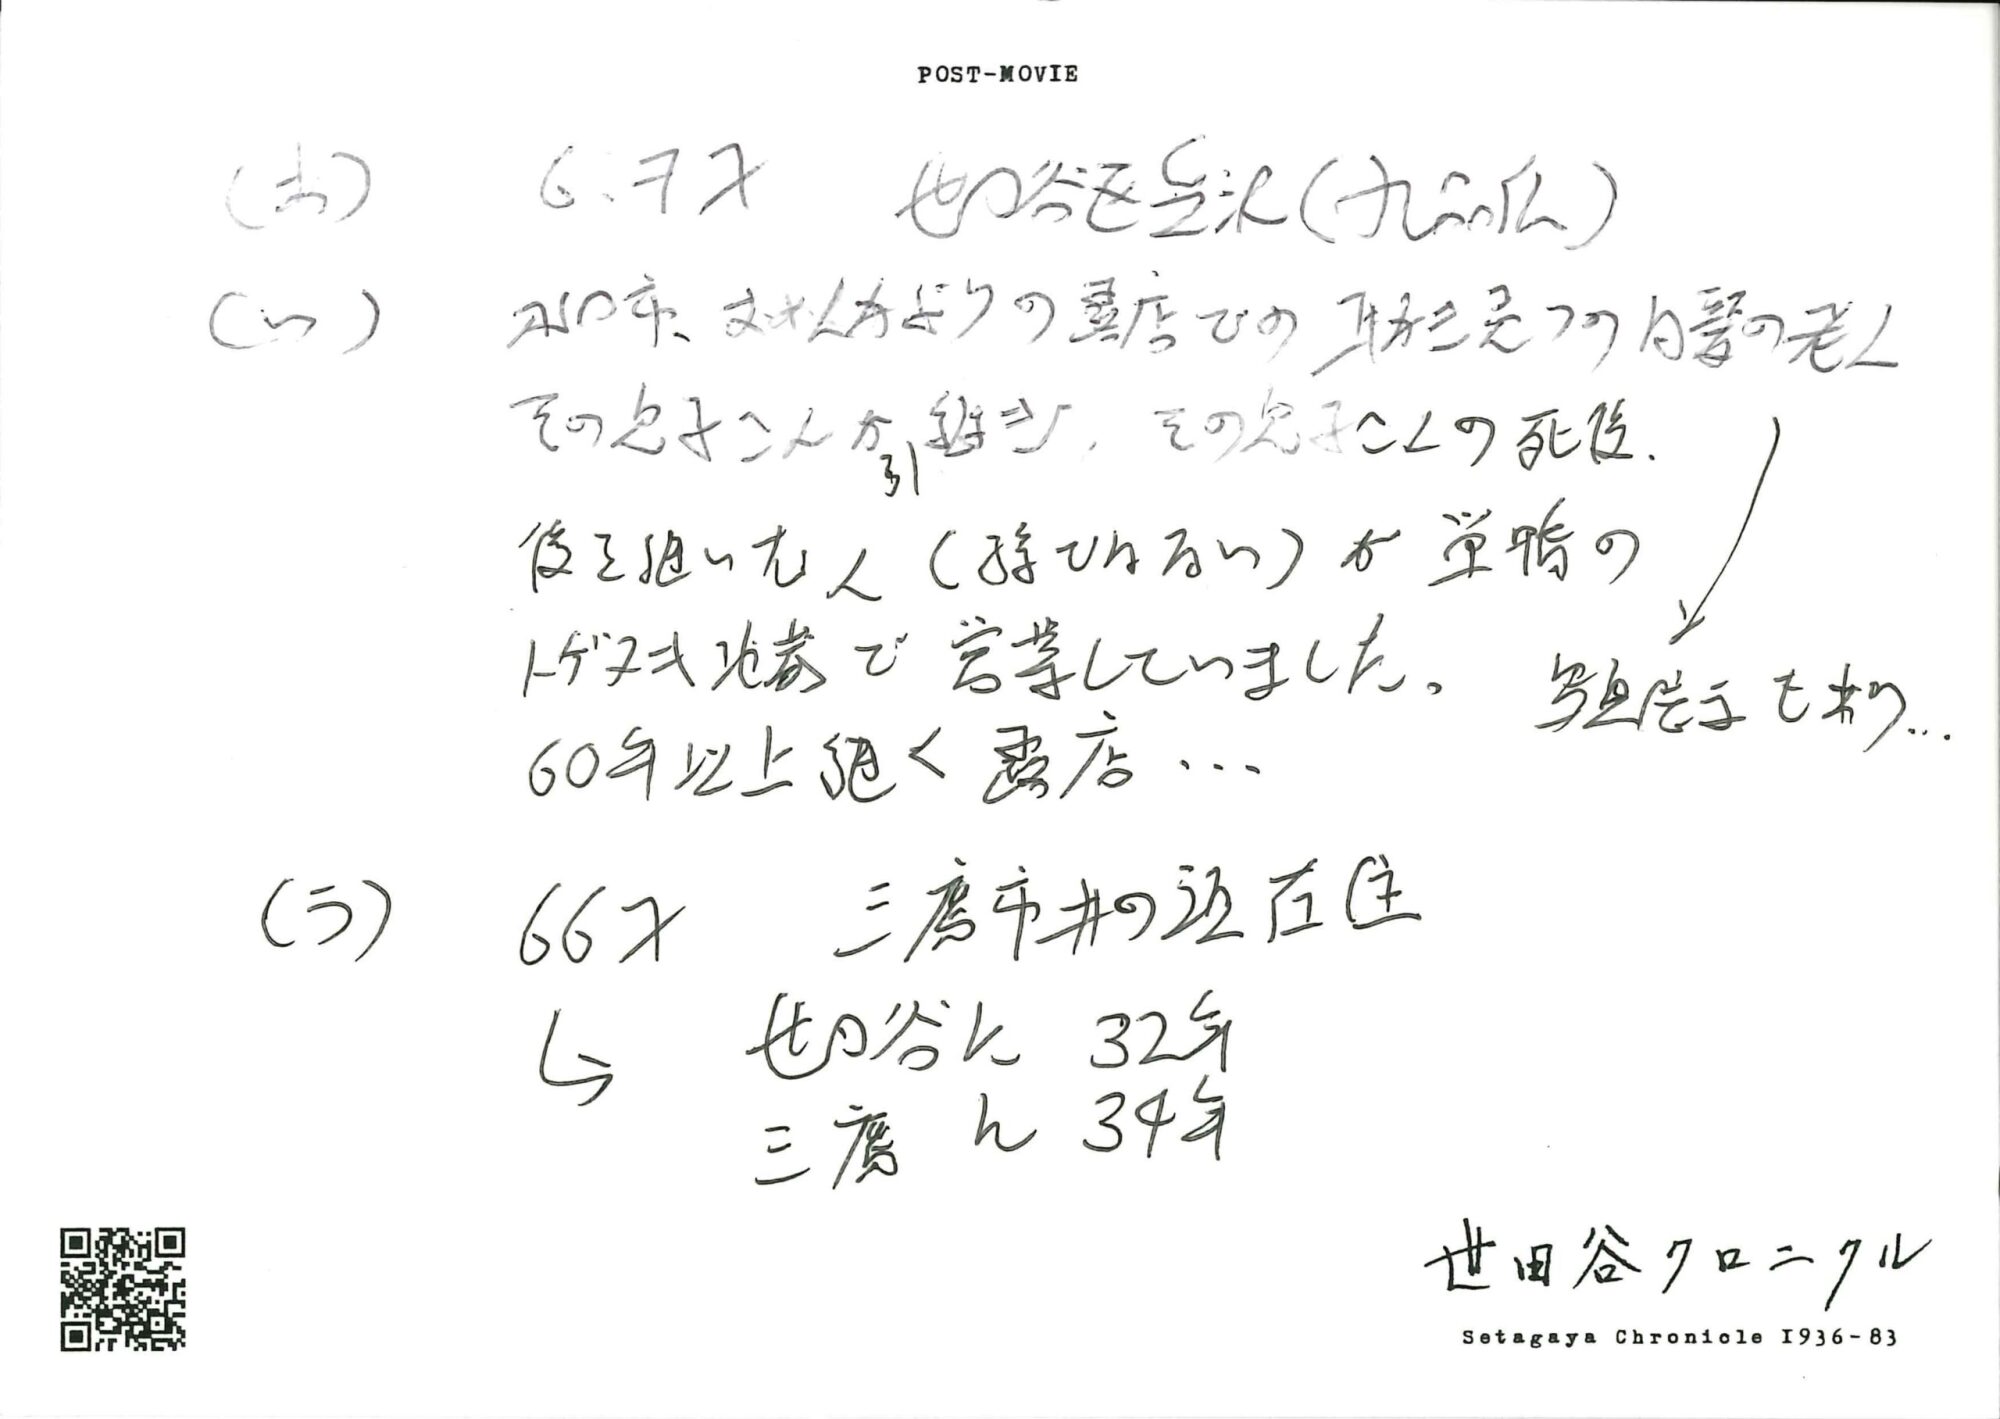 POST-MOVIE
(あ) 6.7才 世田谷区奥沢(九品仏)
(い) ボロ市、ませんかよりの露店での 耳が三つの白髪の老人
その息子さんが引継ぎ、その息子さんの死後、
後を継いだ人(孫ではない)が 巣鴨の
トゲヌキ地蔵で営業していました。
写真展示もあり...
60年以上続く露店...
(う) 66才 三鷹市井の頭在住
↳ 世田谷に 32年
三鷹に 34年
世田谷クロニクル
Setagaya Chronicle 1936-83